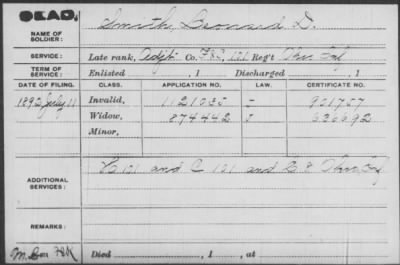 DEAD.
NAME OF SOLDIER: Smith, Leonard D.
SERVICE: Late rank, Adjt. Co. F&S, 101 Reg't Ohio Inf
TERM OF SERVICE: Enlisted , 1 Discharged , 1
DATE OF FILING. CLASS. APPLICATION NO. LAW. CERTIFICATE NO.
1892 July 11 Invalid, 1121035 – 901757
Widow, 874442 636692
Minor,
ADDITIONAL SERVICES: 101 and C 101 and Ohio Inf
REMARKS:
Died , 1 , at